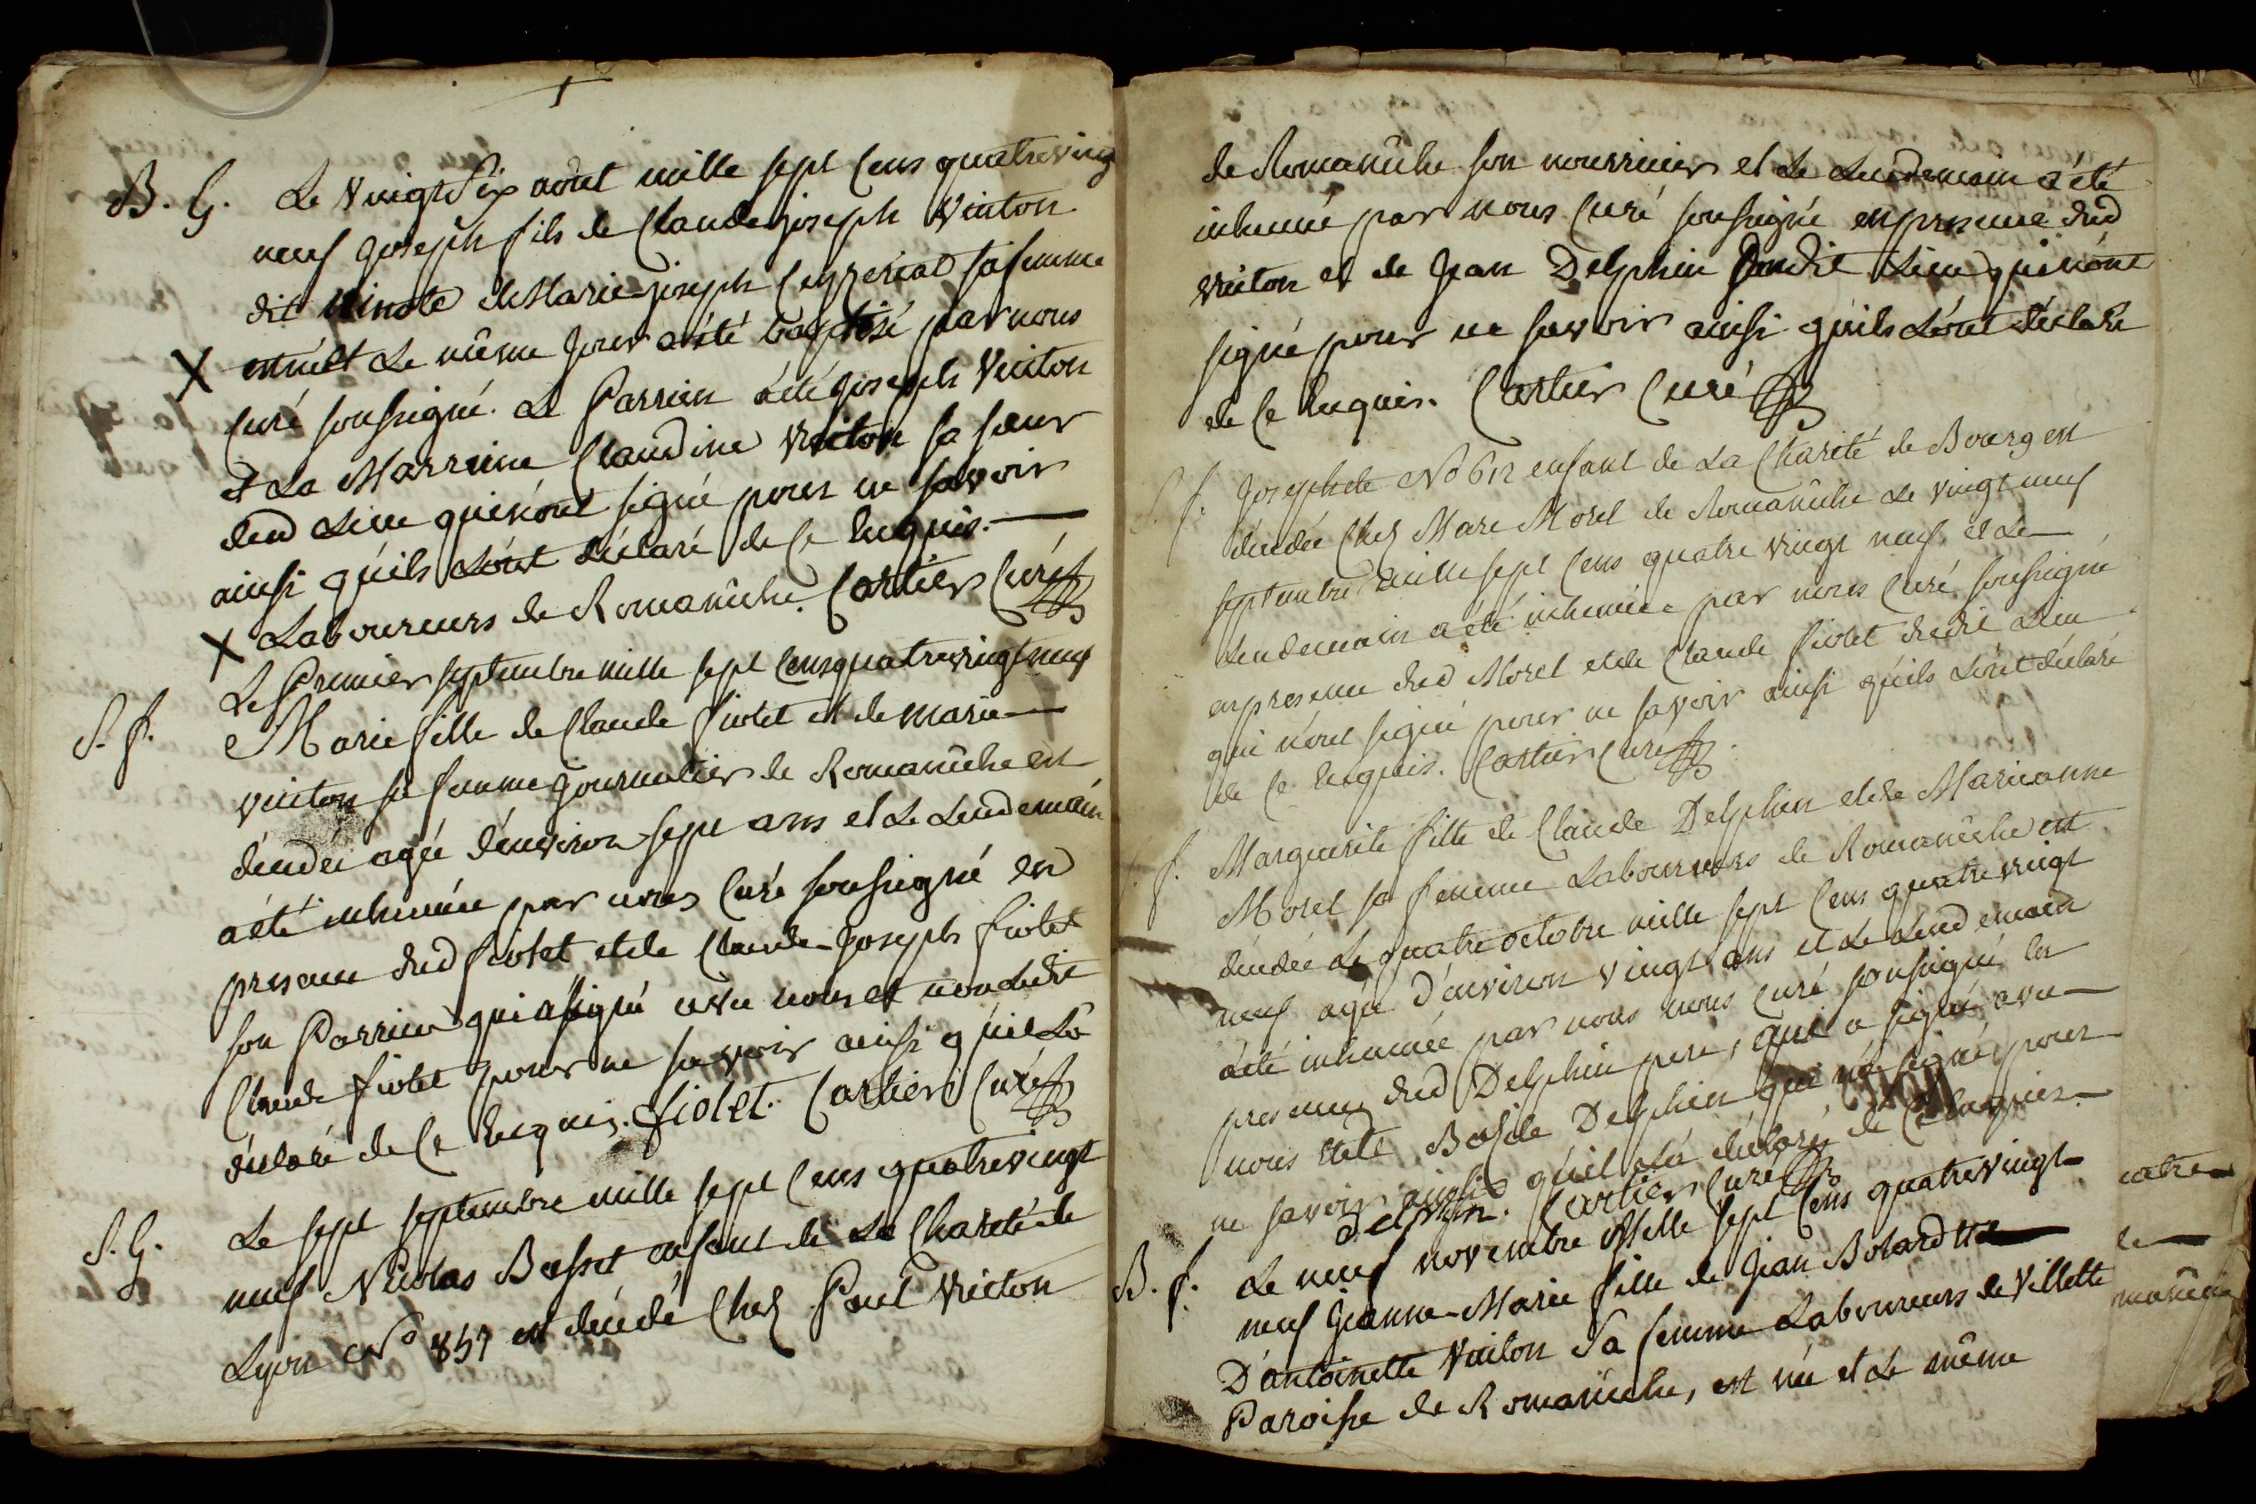 B. G. Le vingt Six aout mille sept cens quatreving
neuf joseph fils de Claude joseph Vuiton
dit ninote de Marie-joseph sa femme
X est né et Le même jour a été baptisé par nous
Curé soussigné. Le Parrien a été joseph Vuiton
et La Marraine Claudine Vuiton sa sœur
dud Lieu qui n'ont signé pour ne savoir
ainsi qu'ils L'ont déclaré de ce Enquis.
X Laboureurs de Romanêche. Cartier Curé
Le Premier septembre mille sept cens quatrevingt neuf
S. f. Marie fille de Claude fiolet et de marie
vuiton sa femme journalier de Romanêche est
décédée agée d'environ sept ans et Le Lendemain
a été inhumée par nous Curé soussigné en
presence dud fiolet et de Claude-joseph fiolet
son Parrien qui a signé avec nous et non ledit
Claude fiolet pour ne savoir ainsi qu'il L'a
déclaré de ce Enquis. fiolet. Cartier Curé
S. G. Le sept septembre mille sept cens quatrevingt
neuf Nicolas Basset enfant de La Charité de
Lyon No 857 est décédé Chez Paul Vuiton
de Romanêche son nourricier et Le Lendemain a été
inhumé par nous Curé soussigné en presence dud
vuiton et de Jean Delphin dudit Lieu qui n'ont
signé pour ne savoir ainsi qu'ils L'ont déclaré
de ce Enquis. Cartier Curé
S. f. Josephte No 612 enfant de La Charité de Bourg est
décédée Chez Marc Morel de Romanêche Le vingt neuf
septembre mille sept cens quatre vingt neuf et Le
Lendemain a été inhumée par nous Curé soussigné
en presence dud Morel et de Claude fiolet dudit Lieu
qui n'ont signé pour ne savoir ainsi qu'ils L'ont déclaré
de ce Enquis. Cartier Curé
f. Marguerite fille de Claude Delphin et de Marieanne
Morel sa femme Laboureurs de Romanêche est
décédée Le quatre octobre mille sept cens quatre vingt
neuf agée d'environ vingt ans et Le Lendemain
a été inhumée par nous nous Curé soussigné en
presence dud Delphin pere, qui a signé avec
nous et de Delphin qui n'a signé pour
ne savoir ainsi qu'il L'a déclaré de ce Enquis.
delphin. Cartier Curé
B. f. Le neuf novembre Mille sept Cens quatrevingt
neuf jeanne-Marie fille de jean Bolard et
D'antoinette Vuiton Sa femme Laboureurs de Villette
Paroisse de Romanêche, est née et Le même